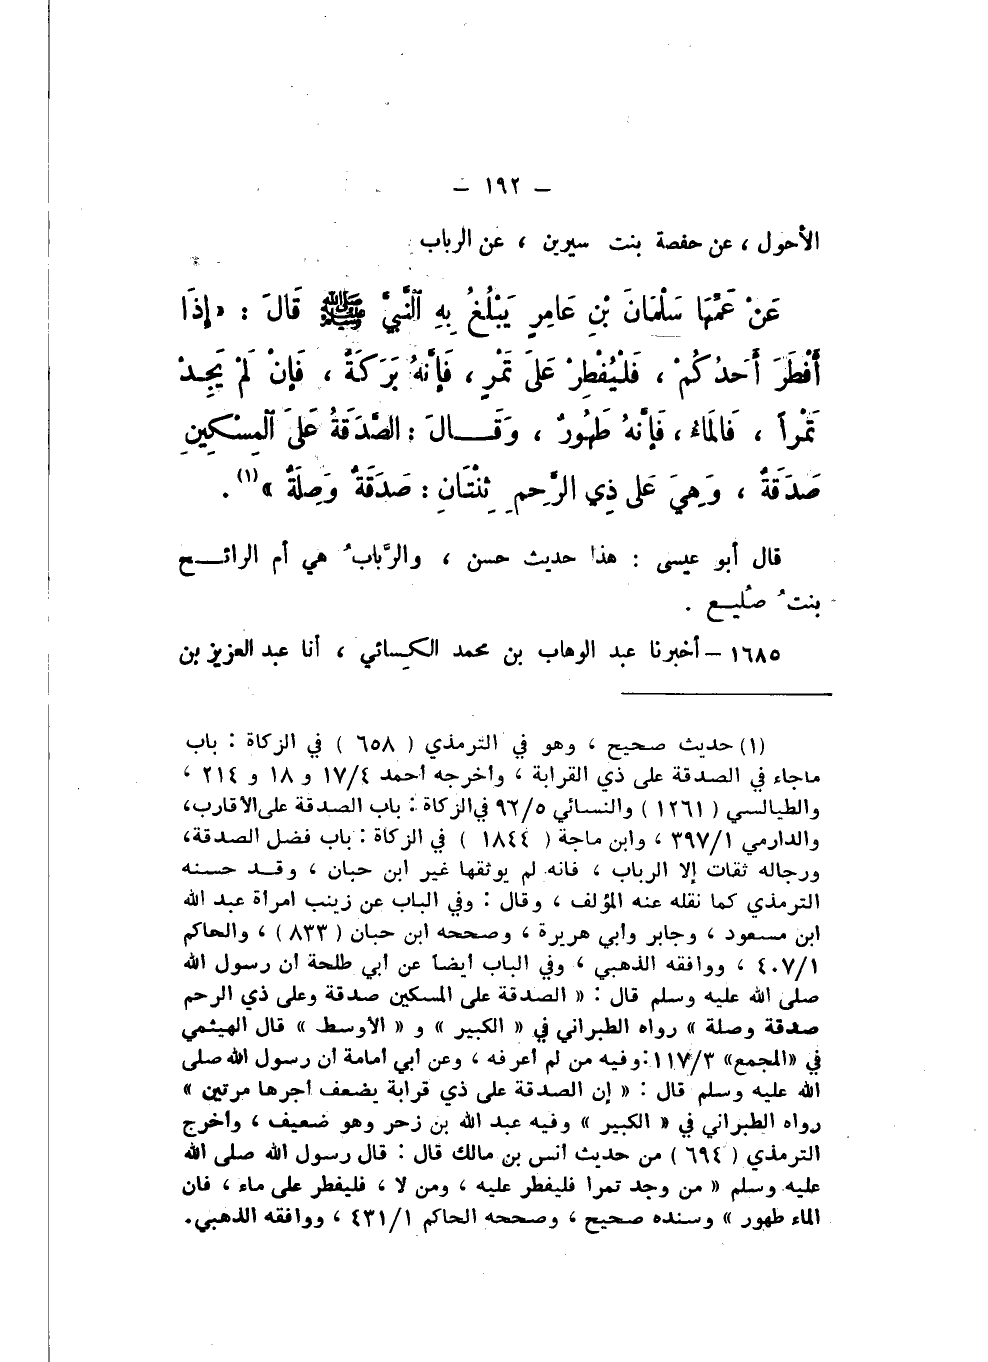 – ١٩٢ –
الأحول ، عن حفصة بنت سيرين ، عن الرباب
عَنْ عَمِّهَا سَلْمَانَ بْنِ عَامِرٍ يَبْلُغُ بِهِ النَّبِيَّ ﷺ قَالَ : « إِذَا
أَفْطَرَ أَحَدُكُمْ ، فَلْيُفْطِرْ عَلَى تَمْرٍ ، فَإِنَّهُ بَرَكَةٌ ، فَإِنْ لَمْ يَجِدْ
تَمْراً ، فَالمَاءُ ، فَإِنَّهُ طَهُورٌ ، وَقَــالَ : الصَّدَقَةُ عَلَى المِسْكِينِ
صَدَقَةٌ ، وَهِيَ عَلَى ذِي الرَّحِمِ ثِنْتَانِ : صَدَقَةٌ وَصِلَةٌ »(١) .
قال أبو عيسى : هذا حديث حسن ، والرَّبابُ هي أم الرائــح
بنتُ صُليـع .
١٦٨٥ – أخبرنا عبد الوهاب بن محمد الكسائي ، أنا عبد العزيز بن
(١) حديث صحيح ، وهو في الترمذي ( ٦٥٨ ) في الزكاة : باب
ماجاء في الصدقة على ذي القرابة ، وأخرجه أحمد ١٧/٤ و ١٨ و ٢١٤ ،
والطيالسي ( ١٢٦١ ) والنسائي ٩٢/٥ في الزكاة : باب الصدقة على الأقارب،
والدارمي ٣٩٧/١ ، وابن ماجة ( ١٨٤٤ ) في الزكاة : باب فضل الصدقة،
ورجاله ثقات إلا الرباب ، فانه لم يوثقها غير ابن حبان ، وقـد حسنه
الترمذي كما نقله عنه المؤلف ، وقال : وفي الباب عن زينب امرأة عبد الله
ابن مسعود ، وجابر وأبي هريرة ، وصححه ابن حبان ( ٨٣٣ ) ، والحاكم
٤٠٧/١ ، ووافقه الذهبي ، وفي الباب أيضاً عن أبي طلحة أن رسول الله
صلى الله عليه وسلم قال : « الصدقة على المسكين صدقة وعلى ذي الرحم
صدقة وصلة » رواه الطبراني في « الكبير » و « الأوسط » قال الهيثمي
في «المجمع» ١١٧/٣:وفيه من لم أعرفه ، وعن أبي أمامة أن رسول الله صلى
الله عليه وسلم قال : « إن الصدقة على ذي قرابة يضعف أجرها مرتين »
رواه الطبراني في « الكبير » وفيه عبد الله بن زحر وهو ضعيف ، وأخرج
الترمذي ( ٦٩٤ ) من حديث أنس بن مالك قال : قال رسول الله صلى الله
عليه وسلم « من وجد تمرا فليفطر عليه ، ومن لا ، فليفطر على ماء ، فان
الماء طهور » وسنده صحيح ، وصححه الحاكم ٤٣١/١ ، ووافقه الذهبي.